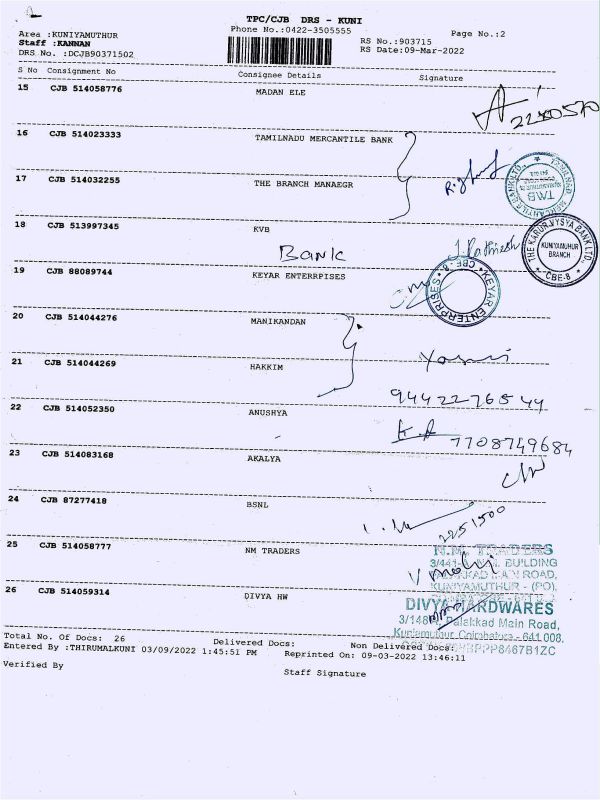 TPC/CJB DRS - KUNI
Area :KUNIYAMUTHUR Phone No.:0422-3505555 Page No.:2
Staff :KANNAN RS No.:903715
DRS No. :DCJB90371502 RS Date:09-Mar-2022
S No Consignment No Consignee Details Signature
15 CJB 514058776 MADAN ELE
2240570
16 CJB 514023333 TAMILNADU MERCANTILE BANK
17 CJB 514032255 THE BRANCH MANAEGR
TAMILNAD MERCANTILE BANK LTD.,
TMB
18 CJB 513997345 KVB
Bank
THE KARUR VYSYA BANK LTD.
KUNIYAMUHUR
BRANCH
CBE-8
19 CJB 88089744 KEYAR ENTERRPISES
KEYAR ENTERPRISES
CBE - 8
20 CJB 514044276 MANIKANDAN
21 CJB 514044269 HAKKIM
9442276544
22 CJB 514052350 ANUSHYA
7708749684
23 CJB 514083168 AKALYA
24 CJB 87277418 BSNL
2251500
25 CJB 514058777 NM TRADERS
N.M. TRADERS
BUILDING
ROAD,
KUNIYAMUTHUR - (PO),
26 CJB 514059314 DIVYA HW
DIVYA HARDWARES
Palakkad Main Road,
Kuniamuthur Coimbatore - 641 008,
Total No. Of Docs: 26 Delivered Docs: Non Delivered Docs:
Entered By :THIRUMALKUNI 03/09/2022 1:45:51 PM Reprinted On: 09-03-2022 13:46:11
Verified By Staff Signature